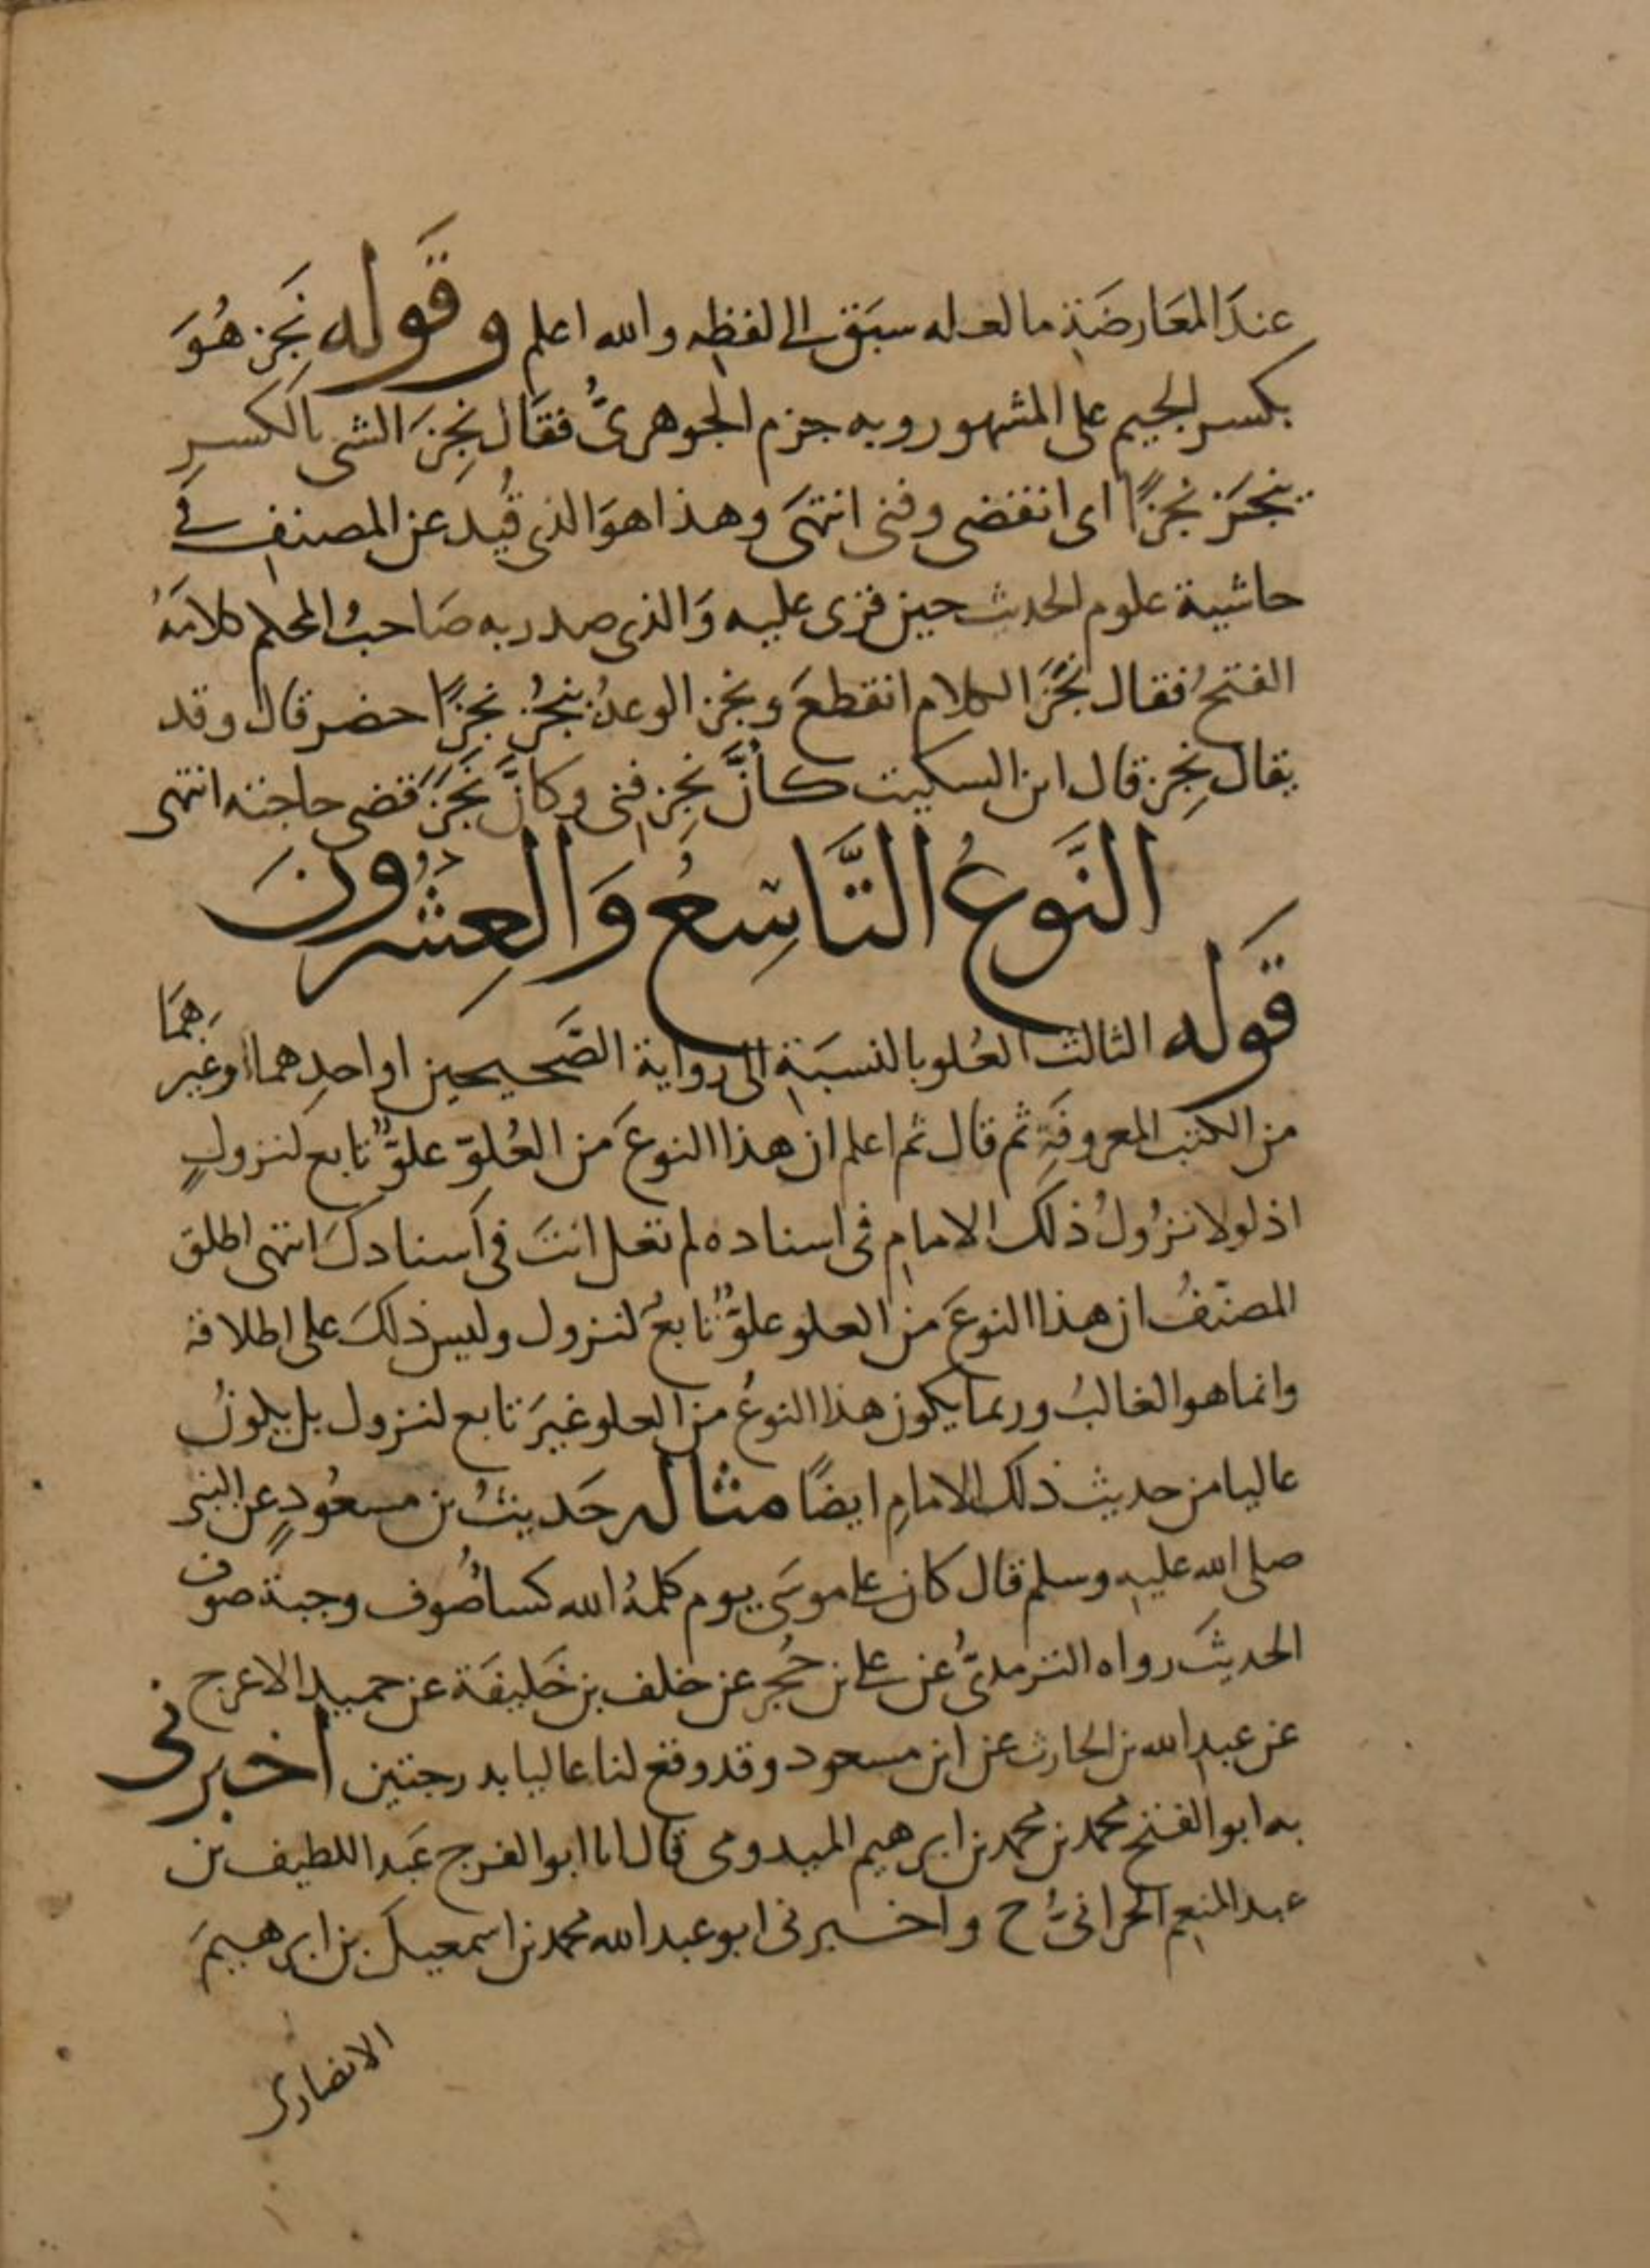 عندَ المعَارضَةِ ما لعله سبَق الى لفظِه والله اعلم وقَوله نَجِز هُوَ
بكسر الجيم على المشهور وبه جزم الجوهرىُّ فقَال نجِزَ الشى بالكسرِ
ينجَز نجزًا اى انقضى وفنى انتهَى وهذا هوَ الذى قُيد عن المصنفِ فى
حاشية علوم الحديث حين قرى عليه وَالذى صدر به صَاحبُ المحكم كلامَهُ
الفتحُ فقال نجَزَ الكلام انقطعَ ونجز الوعدُ ينجُز نجزًا حضر قال وقد
يقال نجِز قال ابن السكيت كأنَّ نجِز فنى وكأنَّ نجَزَ قضى حاجته انتهى
النَّوعُ التَّاسِعُ وَالعِشرُونَ
قَوله الثالث العُلو بالنسبَةِ الى رواية الصَّحيحين او احدِهما او غيرِهمَا
من الكتب المعروفَةِ ثم قال ثم اعلم ان هذا النوعَ من العُلوِّ علوٌّ تابع لنزولٍ
اذ لولا نزُولُ ذلكَ الامامِ فى اسناده لم تعل انتَ فى اسنادكَ انتهى اطلق
المصنّفُ ان هذا النوعَ من العلو علوٌّ تابعٌ لنزول وليس ذلكَ على اطلاقه
وانما هو الغالبُ وربما يكون هذا النوعُ من العلو غيرَ تابع لنزول بل يكونُ
عاليا من حديث ذلك الامامِ ايضًا مثاله حَديثُ بن مسعُودٍ عن النبى
صلى الله عليه وسلم قال كان على موسَى يوم كلمهُ الله كسا صُوف وجبة صوف
الحديثَ رواه الترمذىُّ عن على بن حُجرٍ عن خلف بن خَليفَة عن حميد الاعرج
عن عبدِ الله بن الحارث عن ابن مسعود وقد وقع لنا عاليا بدرجتين اخبرنى
به ابو الفتح محمد بن محمد بن ابرهيم الميدومى قال انا ابو الفرج عَبد اللطيف بن
عبد المنعِم الحرانىُّ ح واخبرنى ابو عبد الله محمد بن اسمعيل بن ابرهيمَ
الانصارى